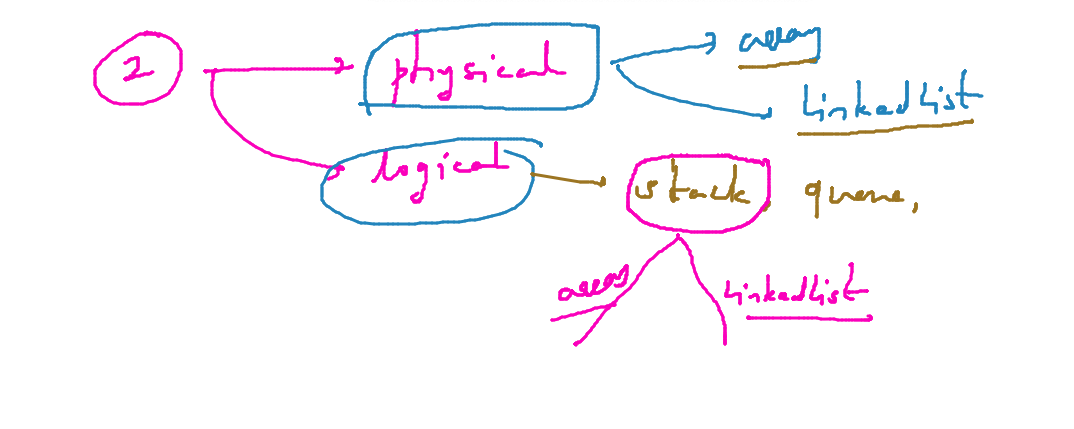 2
physical
array
LinkedList
logical
stack queue,
array
LinkedList